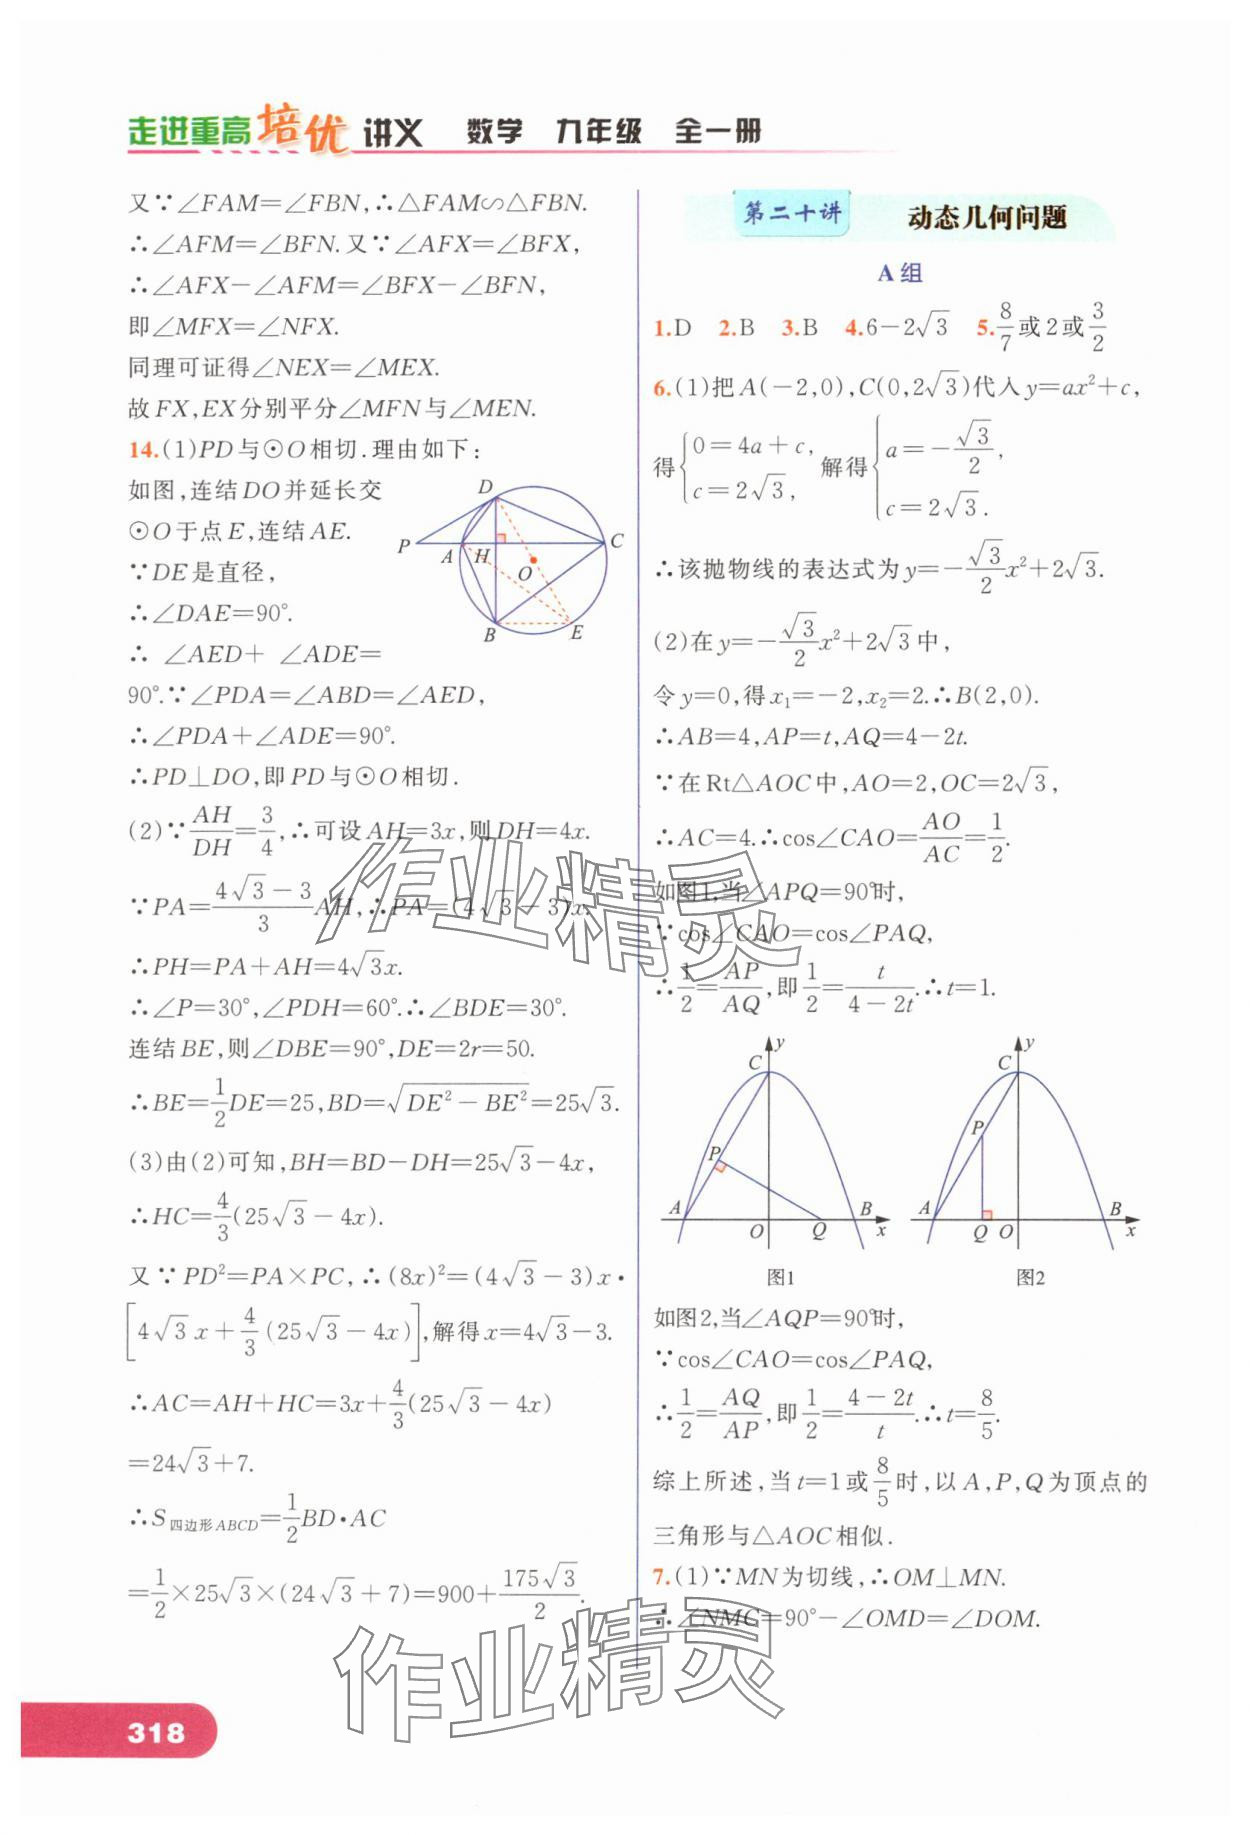 走进重高培优讲义 数学 九年级 全一册
又∵∠FAM=∠FBN,∴△FAM∽△FBN.
∴∠AFM=∠BFN.又∵∠AFX=∠BFX,
∴∠AFX-∠AFM=∠BFX-∠BFN,
即∠MFX=∠NFX.
同理可证得∠NEX=∠MEX.
故FX,EX分别平分∠MFN与∠MEN.
14.(1)PD与⊙O相切.理由如下:
如图,连结DO并延长交
⊙O于点E,连结AE.
∵DE是直径,
∴∠DAE=90°.
∴ ∠AED+ ∠ADE=
90°.∵∠PDA=∠ABD=∠AED,
∴∠PDA+∠ADE=90°.
∴PD⊥DO,即PD与⊙O相切.
D
P
A
H
C
O
B
E
(2)∵AH/DH=3/4,∴可设AH=3x,则DH=4x.
∵PA=(4√3-3)/3 AH,∴PA=(4√3-3)x.
∴PH=PA+AH=4√3x.
∴∠P=30°,∠PDH=60°.∴∠BDE=30°.
连结BE,则∠DBE=90°,DE=2r=50.
∴BE=1/2DE=25,BD=√(DE²-BE²)=25√3.
(3)由(2)可知,BH=BD-DH=25√3-4x,
∴HC=4/3(25√3-4x).
又∵PD²=PA×PC,∴(8x)²=(4√3-3)x·
[4√3x+4/3(25√3-4x)],解得x=4√3-3.
∴AC=AH+HC=3x+4/3(25√3-4x)
=24√3+7.
∴S四边形ABCD=1/2BD·AC
=1/2×25√3×(24√3+7)=900+175√3/2.
第二十讲 动态几何问题
A组
1.D 2.B 3.B 4.6-2√3 5.8/7或2或3/2
6.(1)把A(-2,0),C(0,2√3)代入y=ax²+c,
得{0=4a+c, c=2√3, 解得{a=-√3/2, c=2√3.
∴该抛物线的表达式为y=-√3/2x²+2√3.
(2)在y=-√3/2x²+2√3中,
令y=0,得x₁=-2,x₂=2.∴B(2,0).
∴AB=4,AP=t,AQ=4-2t.
∵在Rt△AOC中,AO=2,OC=2√3,
∴AC=4.∴cos∠CAO=AO/AC=1/2.
如图1,当∠APQ=90°时,
∵cos∠CAO=cos∠PAQ,
∴1/2=AP/AQ,即1/2=t/(4-2t).∴t=1.
y
C
P
A
O
Q
B
x
图1
y
C
P
A
Q
O
B
x
图2
如图2,当∠AQP=90°时,
∵cos∠CAO=cos∠PAQ,
∴1/2=AQ/AP,即1/2=(4-2t)/t.∴t=8/5.
综上所述,当t=1或8/5时,以A,P,Q为顶点的
三角形与△AOC相似.
7.(1)∵MN为切线,∴OM⊥MN.
∴∠NMC=90°-∠OMD=∠DOM.
作业精灵
作业精灵
318